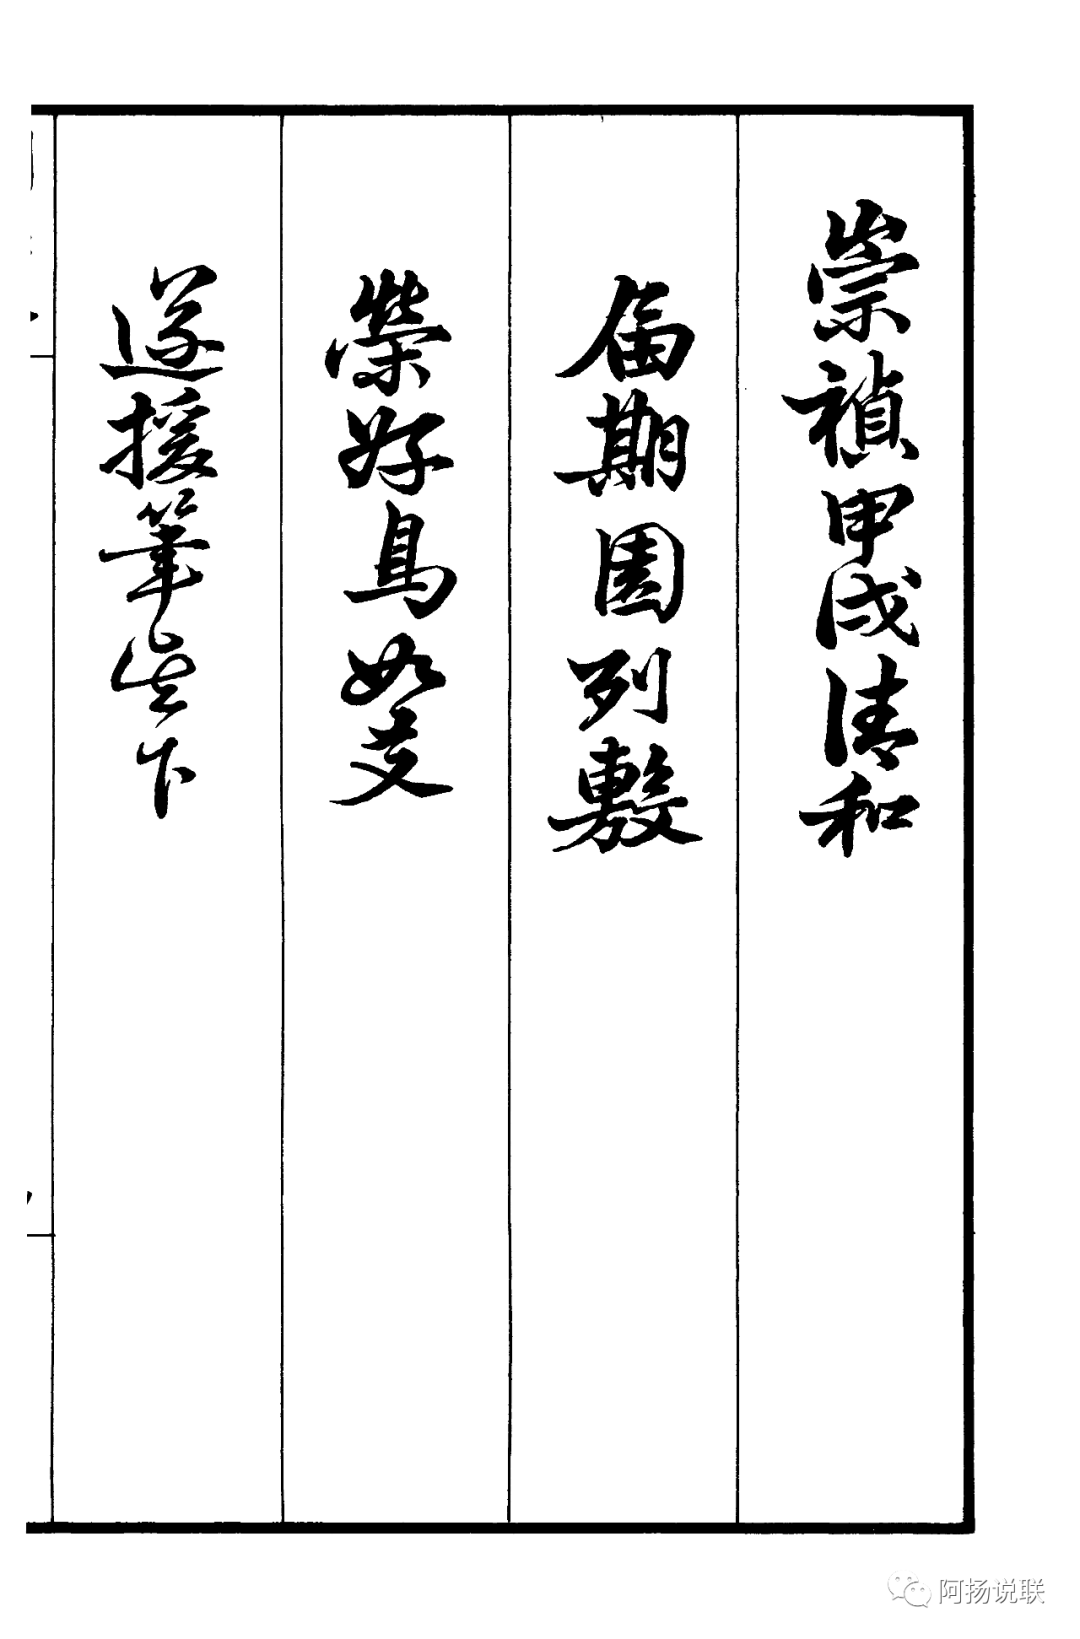 崇禎甲戌清和
届期園列敷
榮好鳥如友
遂援筆坐下
阿扬说联